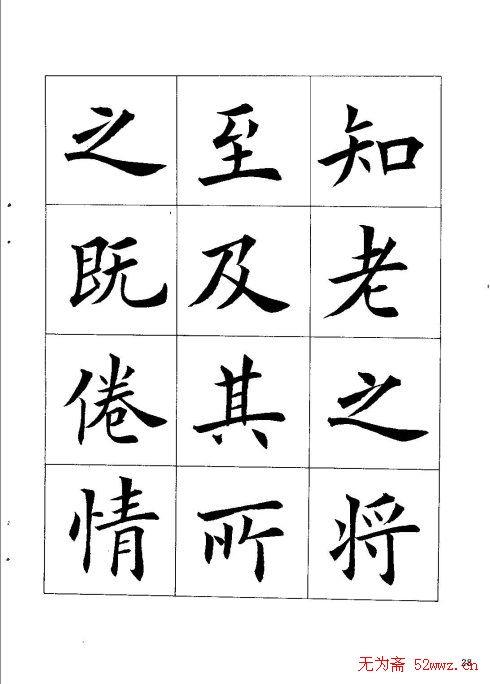 知老之将
至及其所
之既倦情
28
无为斋 52wwz.cn